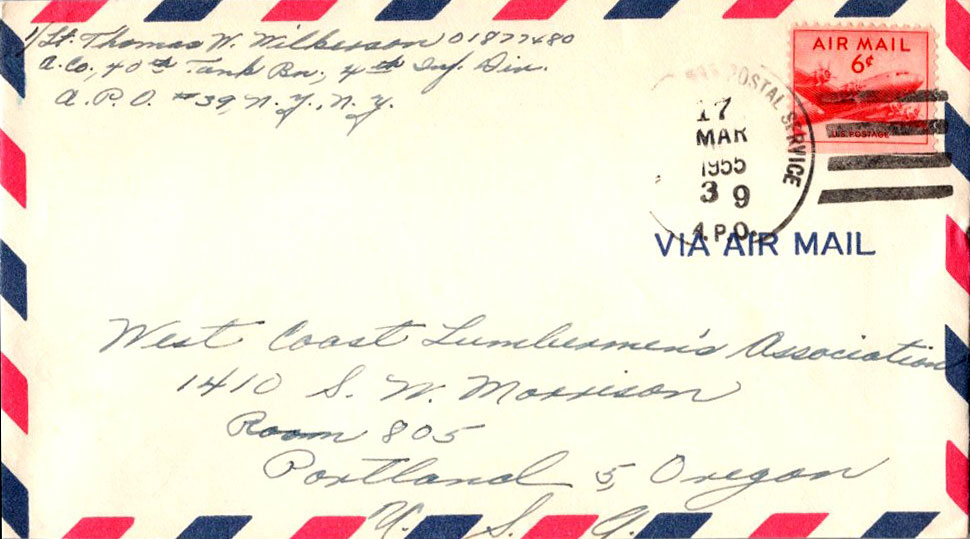 1/Lt. Thomas W. Wilkerson 01877480
A. Co., 40th Tank Bn., 4th Inf. Div.
A. P. O. #39, N. Y., N. Y.
AIR MAIL
6¢
U.S. POSTAGE
POSTAL SERVICE
17
MAR
1955
39
A.P.O.
VIA AIR MAIL
West Coast Lumbermen's Association
1410 S. W. Morrison
Room 805
Portland 5, Oregon
U. S. A.